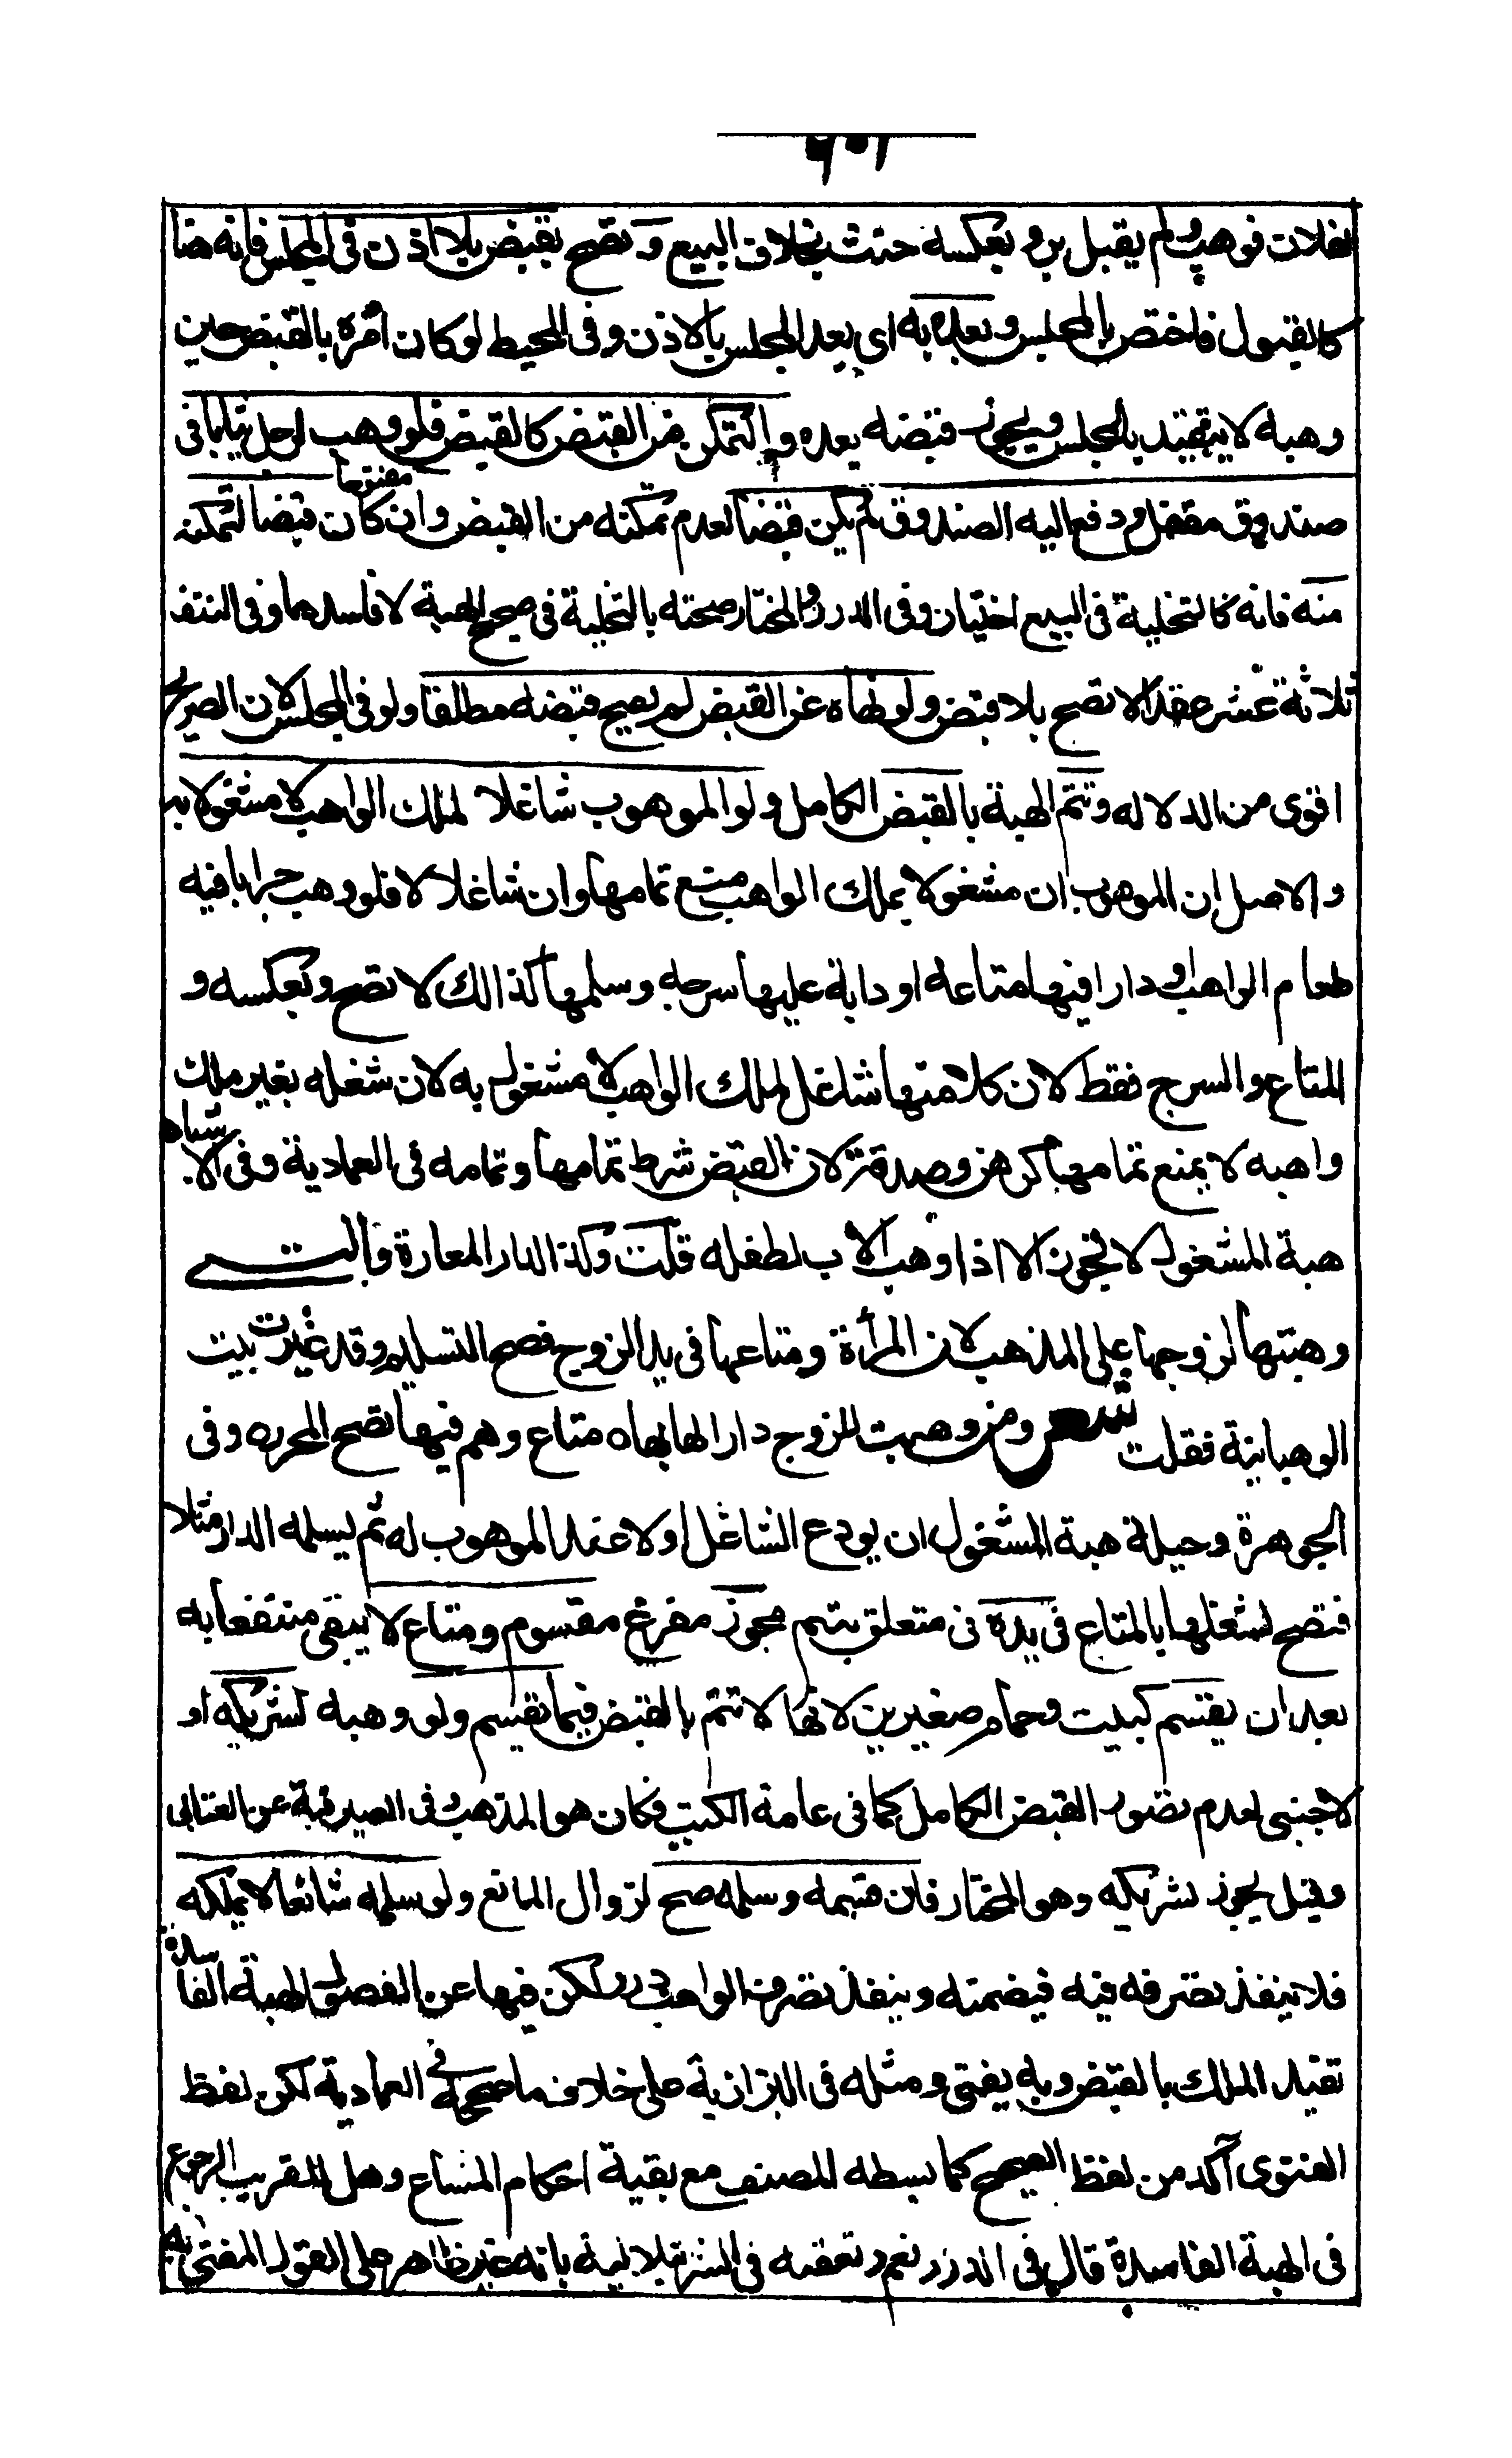 لفلان فوهب ولم يقبل بر وبعكسه حنث بخلاف البيع وتصح بقبض بلا اذن في المجلس فانه هنا
كالقبول فاختص بالمجلس وبعده به اي بعد المجلس بالاذن وفي المحيط لو كان امره بالقبض حين
وهبه لا يتقيد بالمجلس ويجوز قبضه بعده والتمكن من القبض كالقبض فلو وهب لرجل ثيابا في
صندوق مقفل ودفع اليه الصندوق لم يكن قبضا لعدم تمكنه من القبض وان كان مفتوحا قبضا لتمكنه
منه فانه كالتخلية في البيع اختيار وفي الدرر والمختار صحته بالتخلية في صحيح الهبة لا فاسدها وفي النتف
ثلاثة عشر عقدا لا تصح بلا قبض ولو نهاه عن القبض لم يصح قبضه مطلقا ولو في المجلس لان الصريح
اقوى من الدلاله وتتم الهبة بالقبض الكامل ولو الموهوب شاغلا لملك الواهب لا مشغولا به
والاصل ان الموهوب ان مشغولا بملك الواهب منع تمامها وان شاغلا لا فلو وهب جرابا فيه
طعام الواهب او دارا فيها متاعه او دابة عليها سرجه وسلمها كذالك لا تصح وبعكسه و
المتاع والسرج فقط لان كلا منها شاغل لملك الواهب لا مشغول به لان شغله بغير ملك
واهبه لا يمنع تمامها كرهن وصدقة لان القبض شرط تمامها وتمامه في العمادية وفي الاشباه
هبة المشغول لا تجوز الا اذا وهب الاب لطفله قلت وكذا الدار المعارة والتي
وهبتها لزوجها على المذهب لان المرأة ومتاعها في يد الزوج فصح التسليم وقد غيرت بيت
الوهبانية فقلت شعر ومن وهبت للزوج دارا لها بهاه متاع وهم فيها تصح المحرره وفي
الجوهرة وحيلة هبة المشغول ان يودع الشاغل اولا عند الموهوب له ثم يسلمه الدار مثلا
فتصح لشغلها بالمتاع في يده في متعلق بتتم محوز مفرغ مقسوم ومتاع لا يبقى منتفعا به
بعد ان يقسم كبيت وحمام صغيرين لانها لا تتم بالقبض فيما يقسم ولو وهبه لشريكه او
لاجنبي لعدم تصور القبض الكامل كما في عامة الكتب فكان هو المذهب وفي الصيرفية عن العتابي
وقيل يجوز لشريكه وهو المختار فان قسمه وسلمه صح لزوال المانع ولو سلمه شائعا لا يملكه
فلا ينفذ تصرفه فيه فيضمنه وينفذ تصرف الواهب درر لكن فيها عن الفصولين الهبة الفاسدة
تفيد الملك بالقبض وبه يفتى ومثله في البزازية على خلاف ما صححه في العمادية لكن لفظ
الفتوى آكد من لفظ الصحيح كما بسطه المصنف مع بقية احكام المشاع وهل للقريب الرجوع
في الهبة الفاسدة قال في الدرر نعم وتعقبه في الشرنبلالية بانه غير ظاهر على القول المفتى به